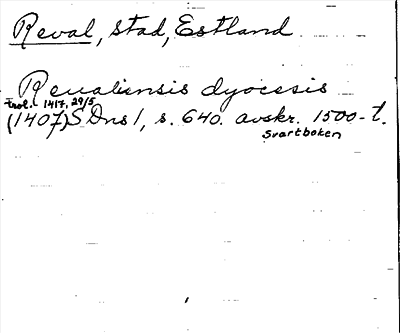 Reval, stad, Estland
Revaliensis dyocesis
trol. 1417, 29/5
(1407) SDns 1, s. 640. avskr. 1500-t.
Svartboken